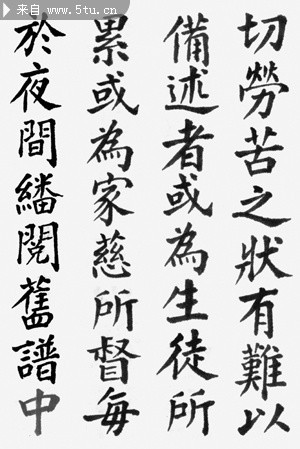 来自 www.5tu.cn
切勞苦之狀有難以
備述者或為生徒所
累或為家慈所督每
於夜間繙閱舊譜中